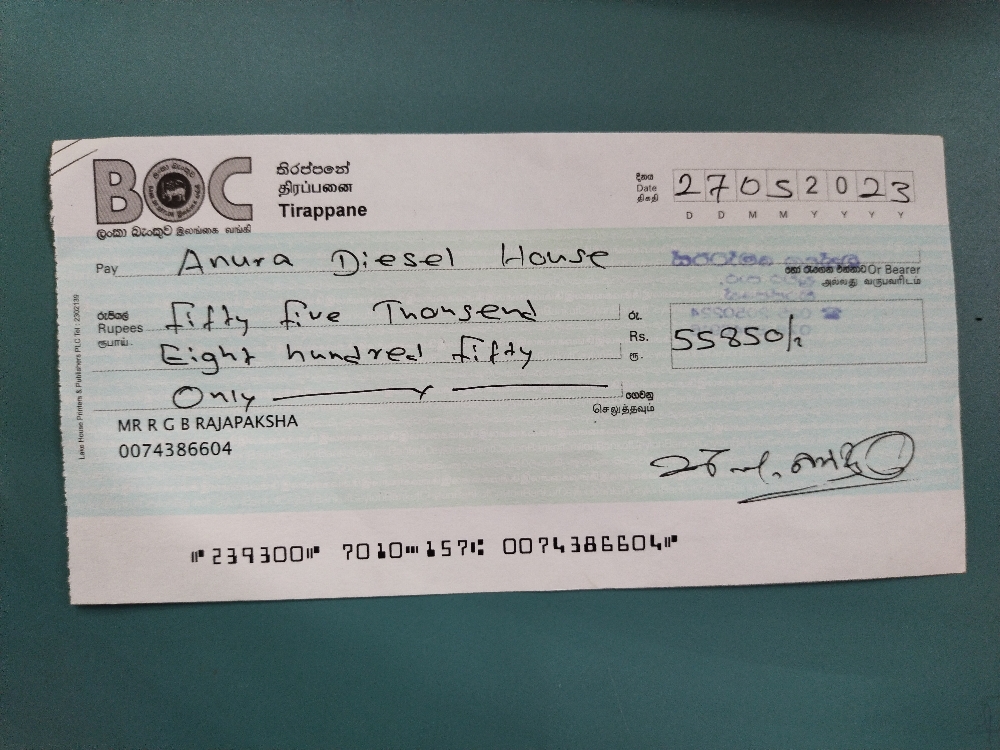 BOC
ලංකා බැංකුව இலங்கை வங்கி
තිරප්පනේ
திரப்பனை
Tirappane
දිනය
Date
திகதி
27052023
D D M M Y Y Y Y
Pay Anura Diesel House
හෝ රැගෙන එන්නාට Or Bearer
அல்லது வருபவரிடம்
රුපියල්
Rupees
ரூபாய்
Fifty five Thousend
Eight hundred fifty
Only
රු.
Rs.
ரூ.
55850/=
ගෙවනු
செலுத்தவும்
MR R G B RAJAPAKSHA
0074386604
Lake House Printers & Publishers PLC Tel : 2302139
⑈239300⑈ 7010⑉157⑆ 0074386604⑈